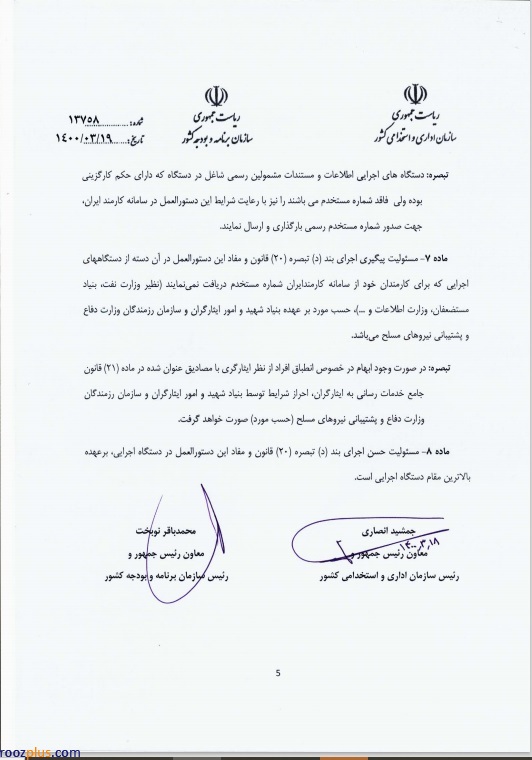 ریاست جمهوری
سازمان اداری و استخدامی کشور
ریاست جمهوری
سازمان برنامه و بودجه کشور
شماره: ۱۳۷۵۸
تاریخ: ۱۴۰۰/۰۳/۱۹
تبصره: دستگاه های اجرایی اطلاعات و مستندات مشمولین رسمی شاغل در دستگاه که دارای حکم کارگزینی
بوده ولی فاقد شماره مستخدم می باشند را نیز با رعایت شرایط این دستورالعمل در سامانه کارمند ایران،
جهت صدور شماره مستخدم رسمی بارگذاری و ارسال نمایند.
ماده ۷- مسئولیت پیگیری اجرای بند (د) تبصره (۲۰) قانون و مفاد این دستورالعمل در آن دسته از دستگاههای
اجرایی که برای کارمندان خود از سامانه کارمندایران شماره مستخدم دریافت نمی‌نمایند (نظیر وزارت نفت، بنیاد
مستضعفان، وزارت اطلاعات و ...)، حسب مورد بر عهده بنیاد شهید و امور ایثارگران و سازمان رزمندگان وزارت دفاع
و پشتیبانی نیروهای مسلح می‌باشد.
تبصره: در صورت وجود ابهام در خصوص انطباق افراد از نظر ایثارگری با مصادیق عنوان شده در ماده (۲۱) قانون
جامع خدمات رسانی به ایثارگران، احراز شرایط توسط بنیاد شهید و امور ایثارگران و سازمان رزمندگان
وزارت دفاع و پشتیبانی نیروهای مسلح (حسب مورد) صورت خواهد گرفت.
ماده ۸- مسئولیت حسن اجرای بند (د) تبصره (۲۰) قانون و مفاد این دستورالعمل در دستگاه اجرایی، برعهده
بالاترین مقام دستگاه اجرایی است.
جمشید انصاری
۱۴۰۰.۳.۱۸
معاون رئیس جمهور و
رئیس سازمان اداری و استخدامی کشور
محمدباقر نوبخت
معاون رئیس جمهور و
رئیس سازمان برنامه و بودجه کشور
5
roozplus.com